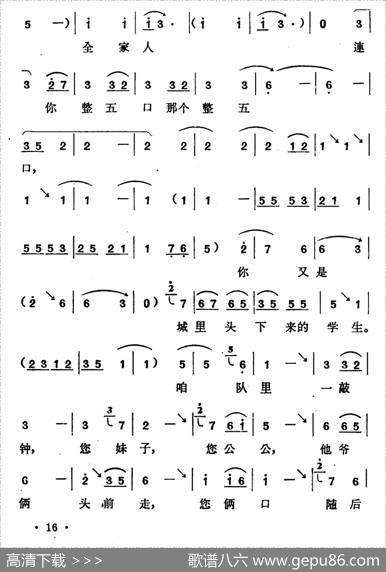 5 —) | i i | i 3· | (i | i 3·) | 0 3 |
全 家 人 連
3 27 | 3 32 | 3 32 | 3 6 — | — 6 |
你 整 五 口 那个 整 五
35 2 | 2 — | 2 2 | 2 12 | 1 1 |
口，
1 1 | 1 — | (1 | 1 — | 55 53 | 21 1 |
55 53 | 25 21 | 1 76 | 5) | 2 7 6 | 6 3 |
你 又 是
(2 6 | 6 3 | 0) 2 7 | 67 65 | 35 55 | 5 1 |
城 里 头 下 来 的 学 生。
(23 12 | 35 1 | 1) | 5 5 | 5 6 1 — | 3 32 |
咱 队 里 一 敲
3 — | 3 7 2 — | 2 7 6 i | 5 — | 6 65 |
钟， 您 妹 子， 您 公 公， 他 爷
G — | 2 35 | 6 — | i i6 | i — | 2 7 6 |
俩 头 前 走， 您 俩 口 随 后
· 16 ·
高清下载 >>>
歌谱八六 www.gepu86.com